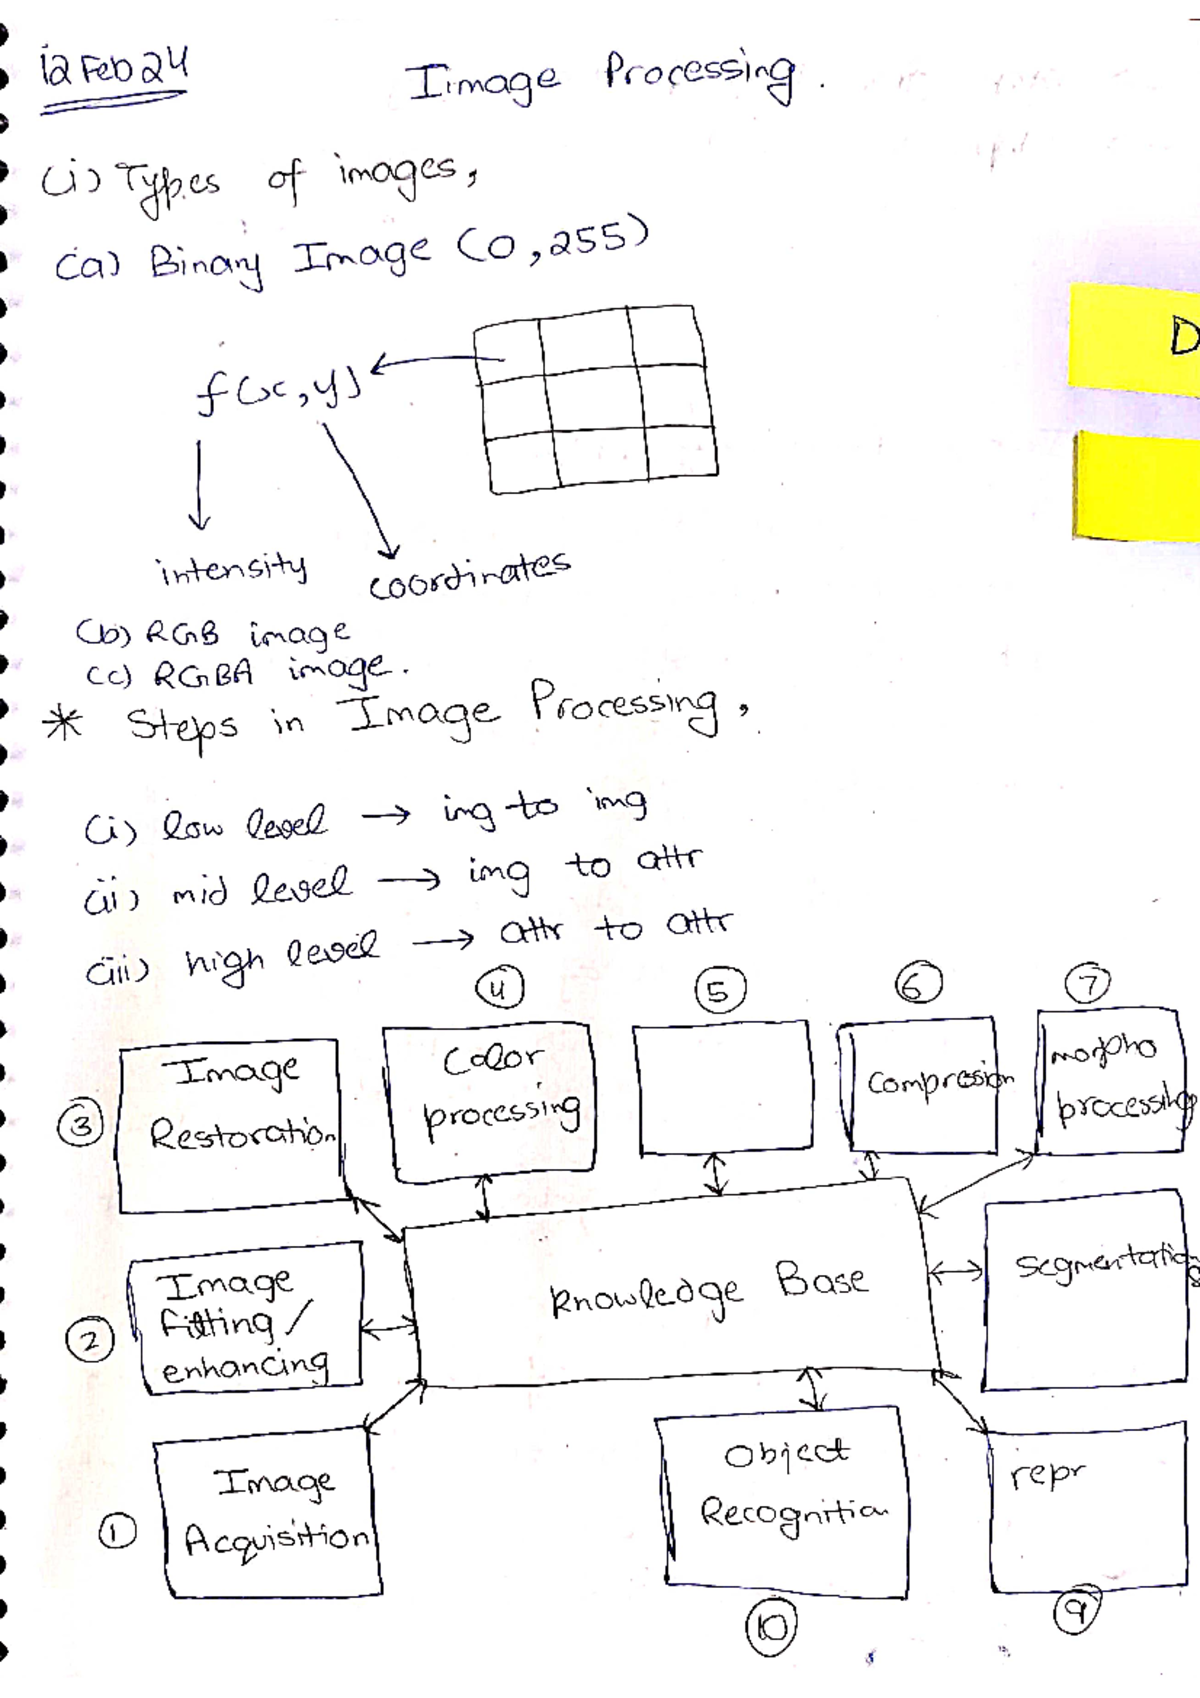 12 Feb 24
Image Processing.
(i) Types of images,
(a) Binary Image (0,255)
f(x,y)
intensity
coordinates
(b) RGB image
(c) RGBA image.
* Steps in Image Processing,
(i) low level → img to img
(ii) mid level → img to attr
(iii) high level → attr to attr
4
5
6
7
Image
Restoration
3
Color
processing
compression
morpho
processing
Image
filtting/
enhancing
2
Knowledge Base
segmentation
Image
Acquisition
1
Object
Recognition
10
repr
9
D